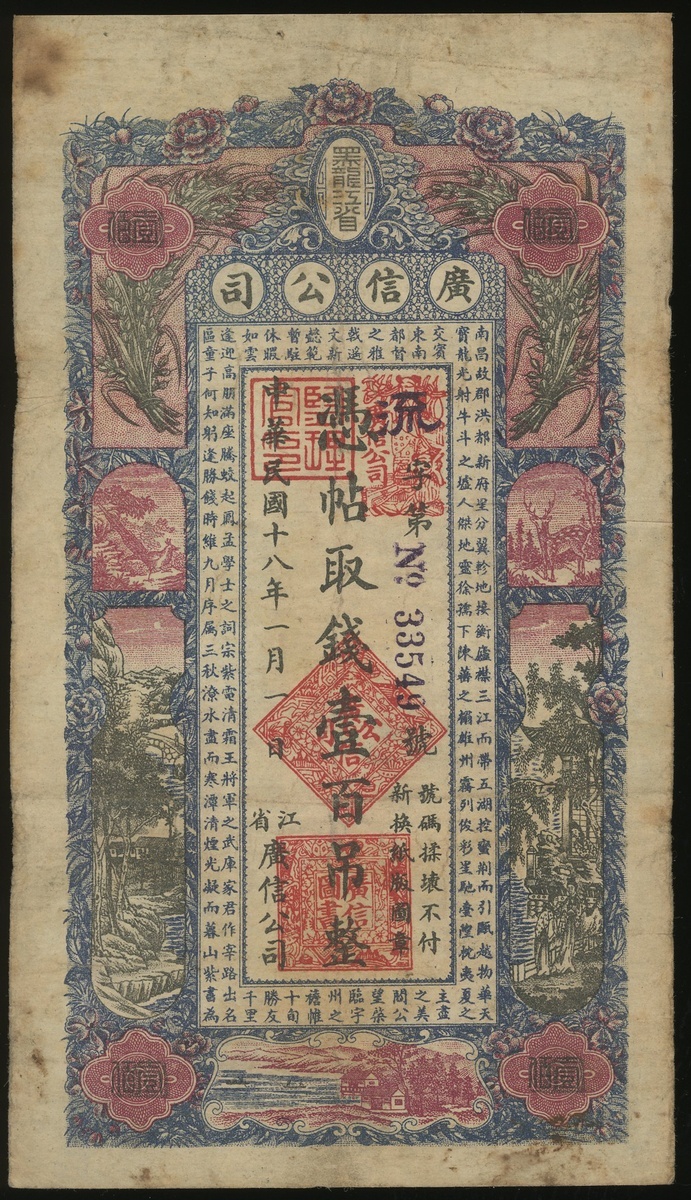 黑龍江省
廣信公司
壹佰
壹佰
南昌故郡洪都新府星分翼軫地接衡廬襟三江而帶五湖控蠻荊而引甌越物華天
寶龍光射牛斗之墟人傑地靈徐孺下陳蕃之榻雄州霧列俊彩星馳臺隍枕夷夏之
交賓
主盡
東南
之美
都督
閻公
之雅
望棨
戟遙
臨宇
文新
州之
懿範
襜帷
暫駐
十旬
休暇
勝友
如雲
千里
逢迎高朋滿座騰蛟起鳳孟學士之詞宗紫電清霜王將軍之武庫家君作宰路出名
區童子何知躬逢勝餞時維九月序屬三秋潦水盡而寒潭清煙光凝而暮山紫書為
流字第No 33549號
號碼揉壞不付
新換紙版圖章
憑帖取錢壹百吊整
中華民國十八年一月一日
江省廣信公司
廣信公司圖書
壹佰
壹佰